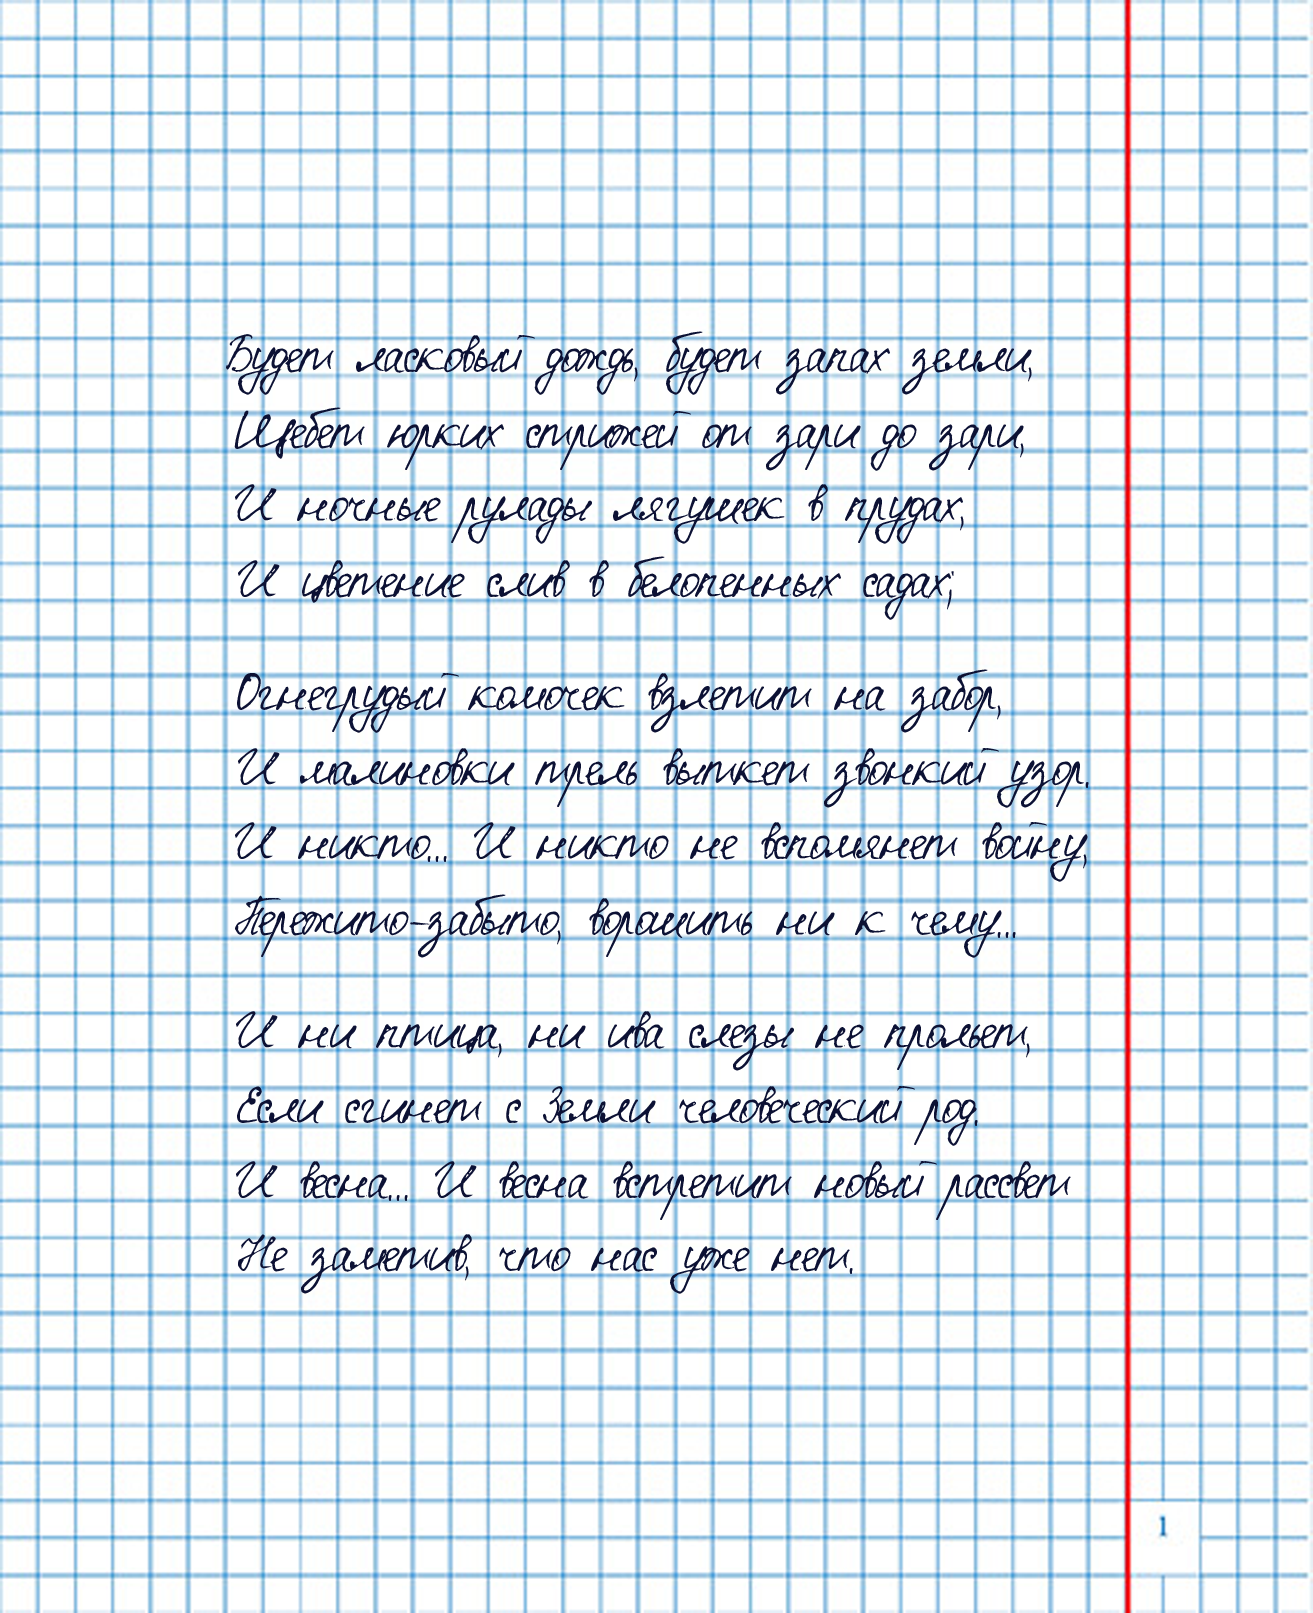 Будет ласковый дождь, будет запах земли,
Щебет юрких стрижей от зари до зари,
И ночные рулады лягушек в прудах,
И цветение слив в белопенных садах;
Огнегрудый комочек взлетит на забор,
И малиновки трель выткет звонкий узор.
И никто... И никто не вспомянет войну,
Пережито-забыто, ворошить ни к чему...
И ни птица, ни ива слезы не прольет,
Если сгинет с Земли человеческий род.
И весна... И весна встретит новый рассвет
Не заметив, что нас уже нет.
1